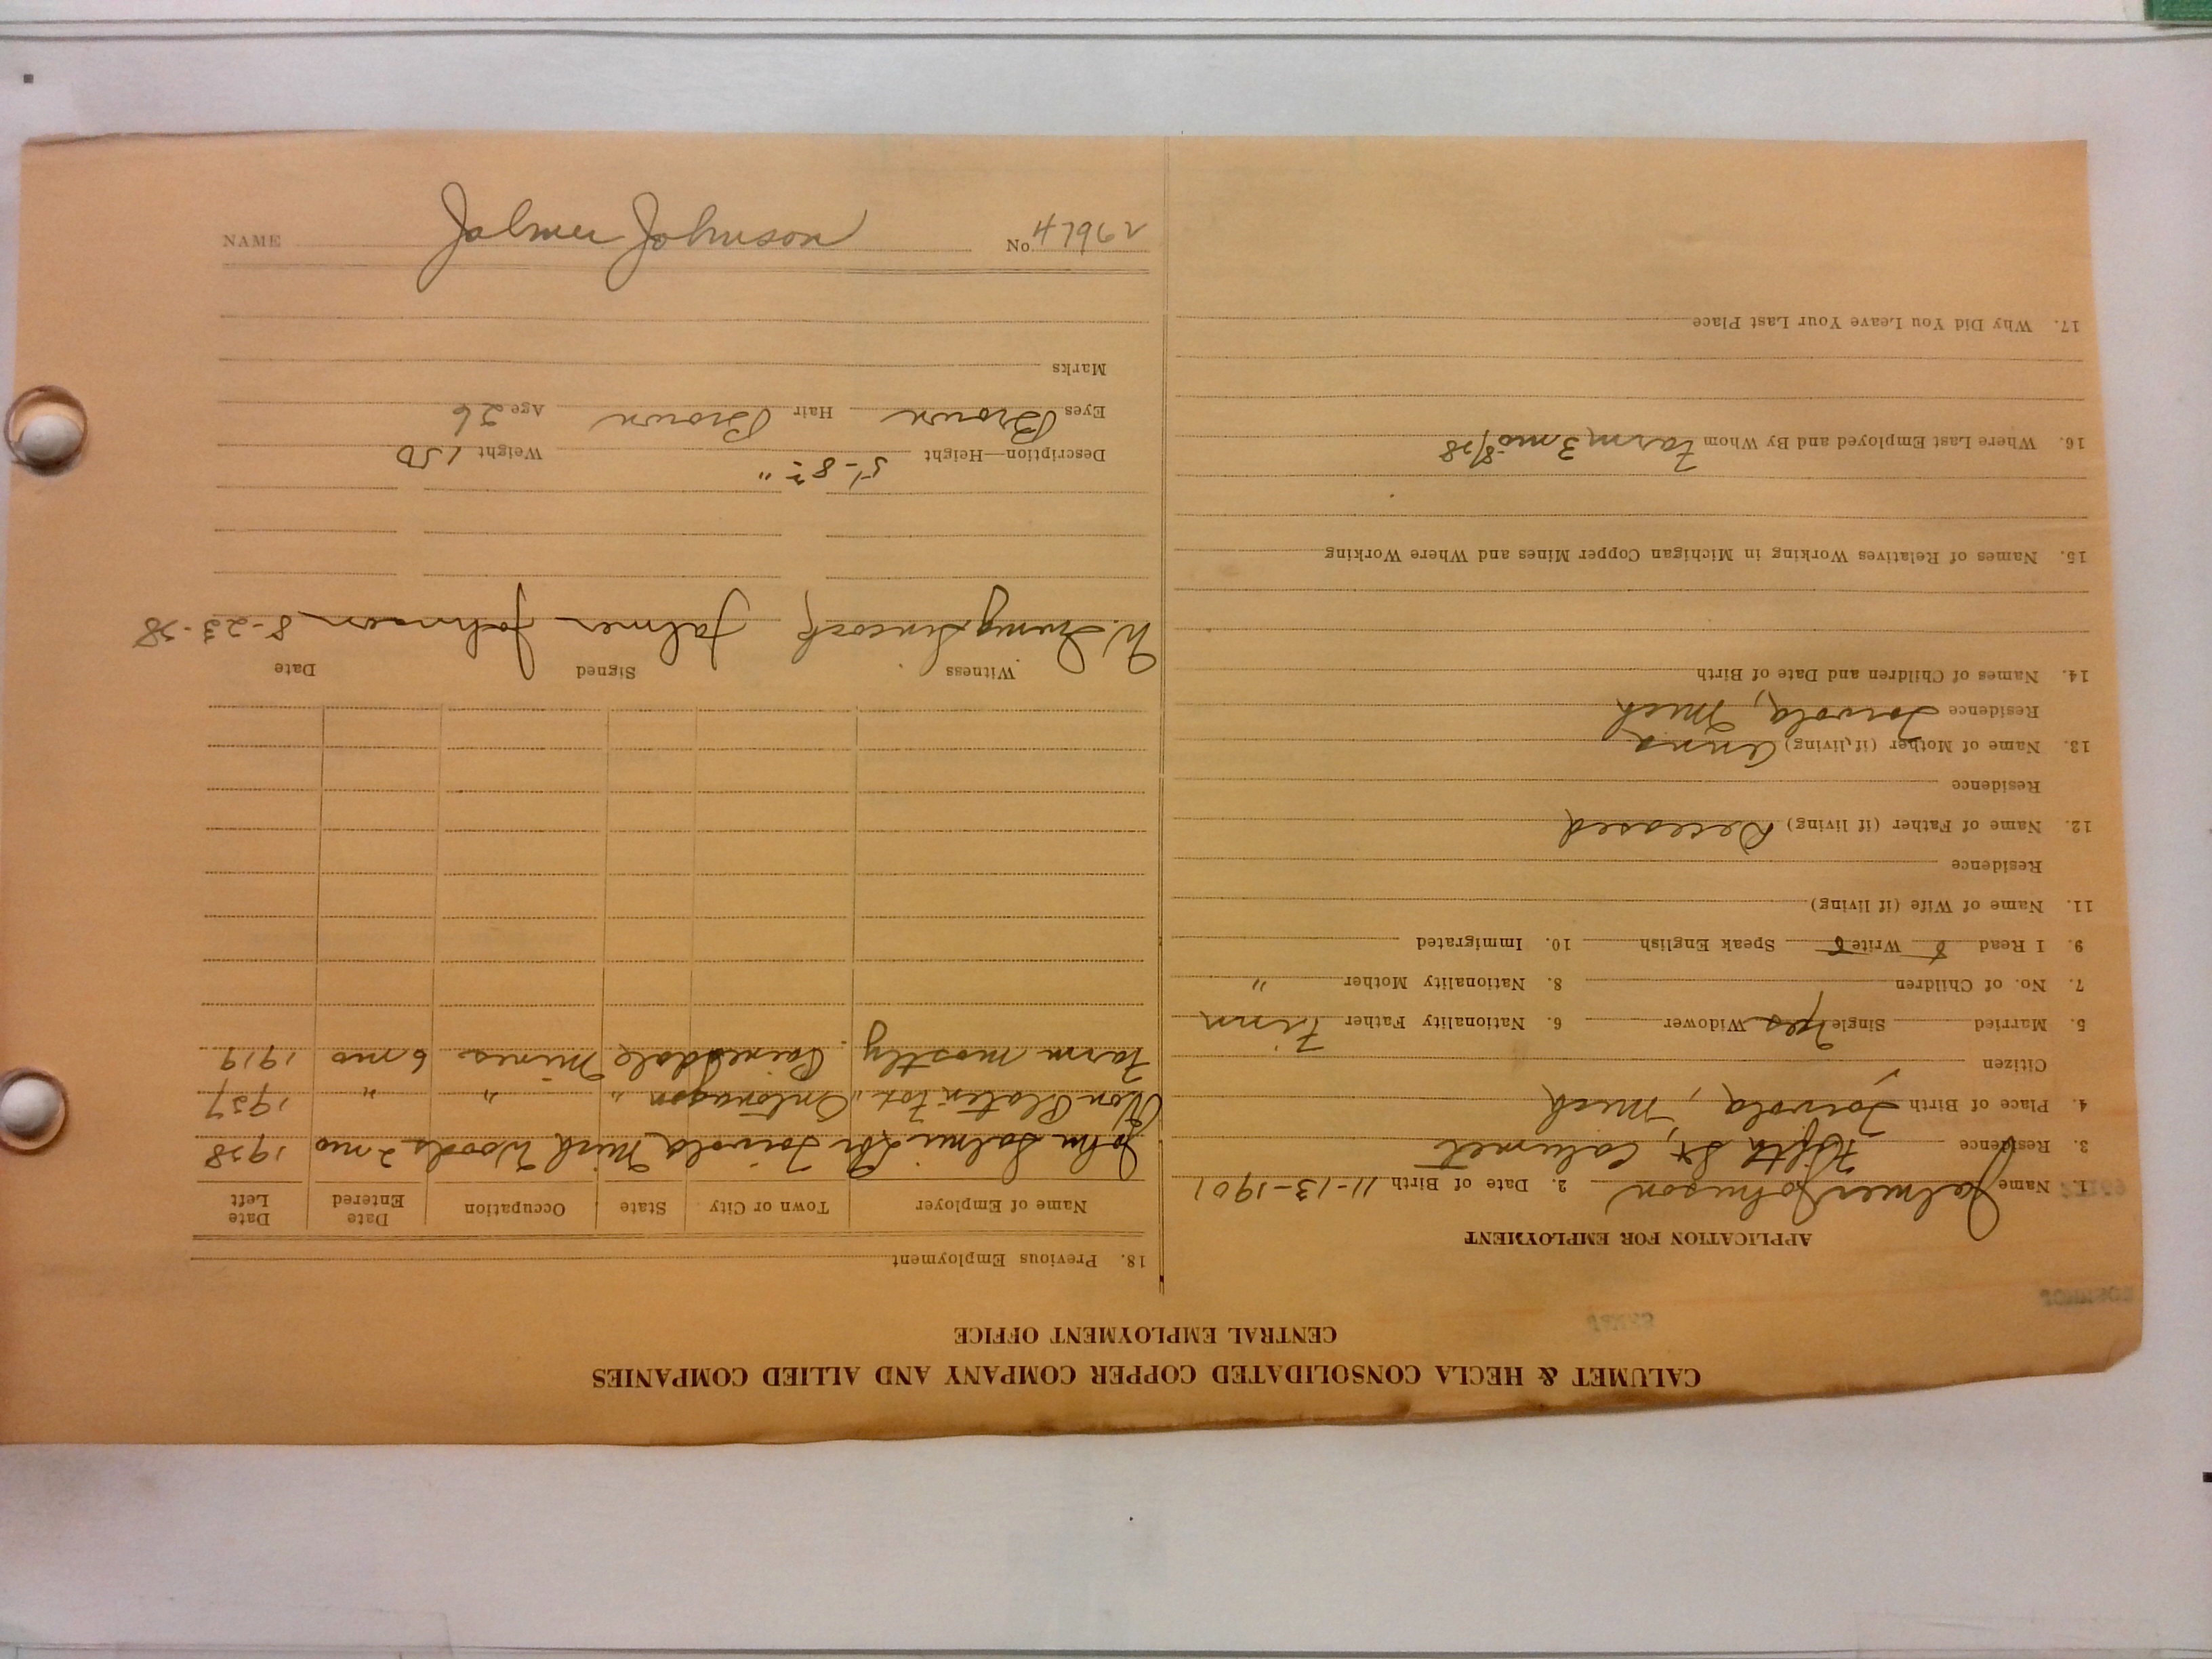 CALUMET & HECLA CONSOLIDATED COPPER COMPANY AND ALLIED COMPANIES
CENTRAL EMPLOYMENT OFFICE
APPLICATION FOR EMPLOYMENT
1. Name Jalmer Johnson 2. Date of Birth 11-13-1901
3. Residence Fifth St, Calumet
4. Place of Birth Toivola, Mich
Citizen
5. Married Single Yes Widower 6. Nationality Father Finn
7. No. of Children 8. Nationality Mother "
9. I Read Write Speak English 10. Immigrated
11. Name of Wife (if living)
Residence
12. Name of Father (if living) Deceased
Residence
13. Name of Mother (if living) Anna
Residence Toivola, Mich
14. Names of Children and Date of Birth
15. Names of Relatives Working in Michigan Copper Mines and Where Working
16. Where Last Employed and By Whom Farm 3 mo 8/28
17. Why Did You Leave Your Last Place
18. Previous Employment
Name of Employer Town or City State Occupation Date Entered Date Left
John Salmi Toivola Mich Woods 2 mo 1928
Ontonagon " " " 1927
Farm mostly Painesdale Mines 6 mo 1919
Witness Signed Date
Jalmer Johnson 8-23-28
Description—Height 5'-8½" Weight 150
Eyes Brown Hair Brown Age 26
Marks
NAME Jalmer Johnson No. 47962